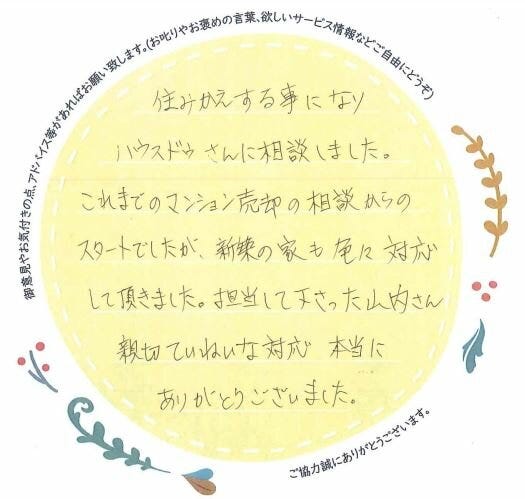 御意見やお気付きの点、アドバイス等があればお願い致します。(お叱りやお褒めの言葉、欲しいサービス情報などご自由にどうぞ)
住みかえする事になり
ハウスドゥさんに相談しました。
これまでのマンション売却の相談からの
スタートでしたが、新築の家も色々対応
して頂きました。担当して下さった山内さん
親切ていねいな対応 本当に
ありがとうございました。
ご協力誠にありがとうございます。